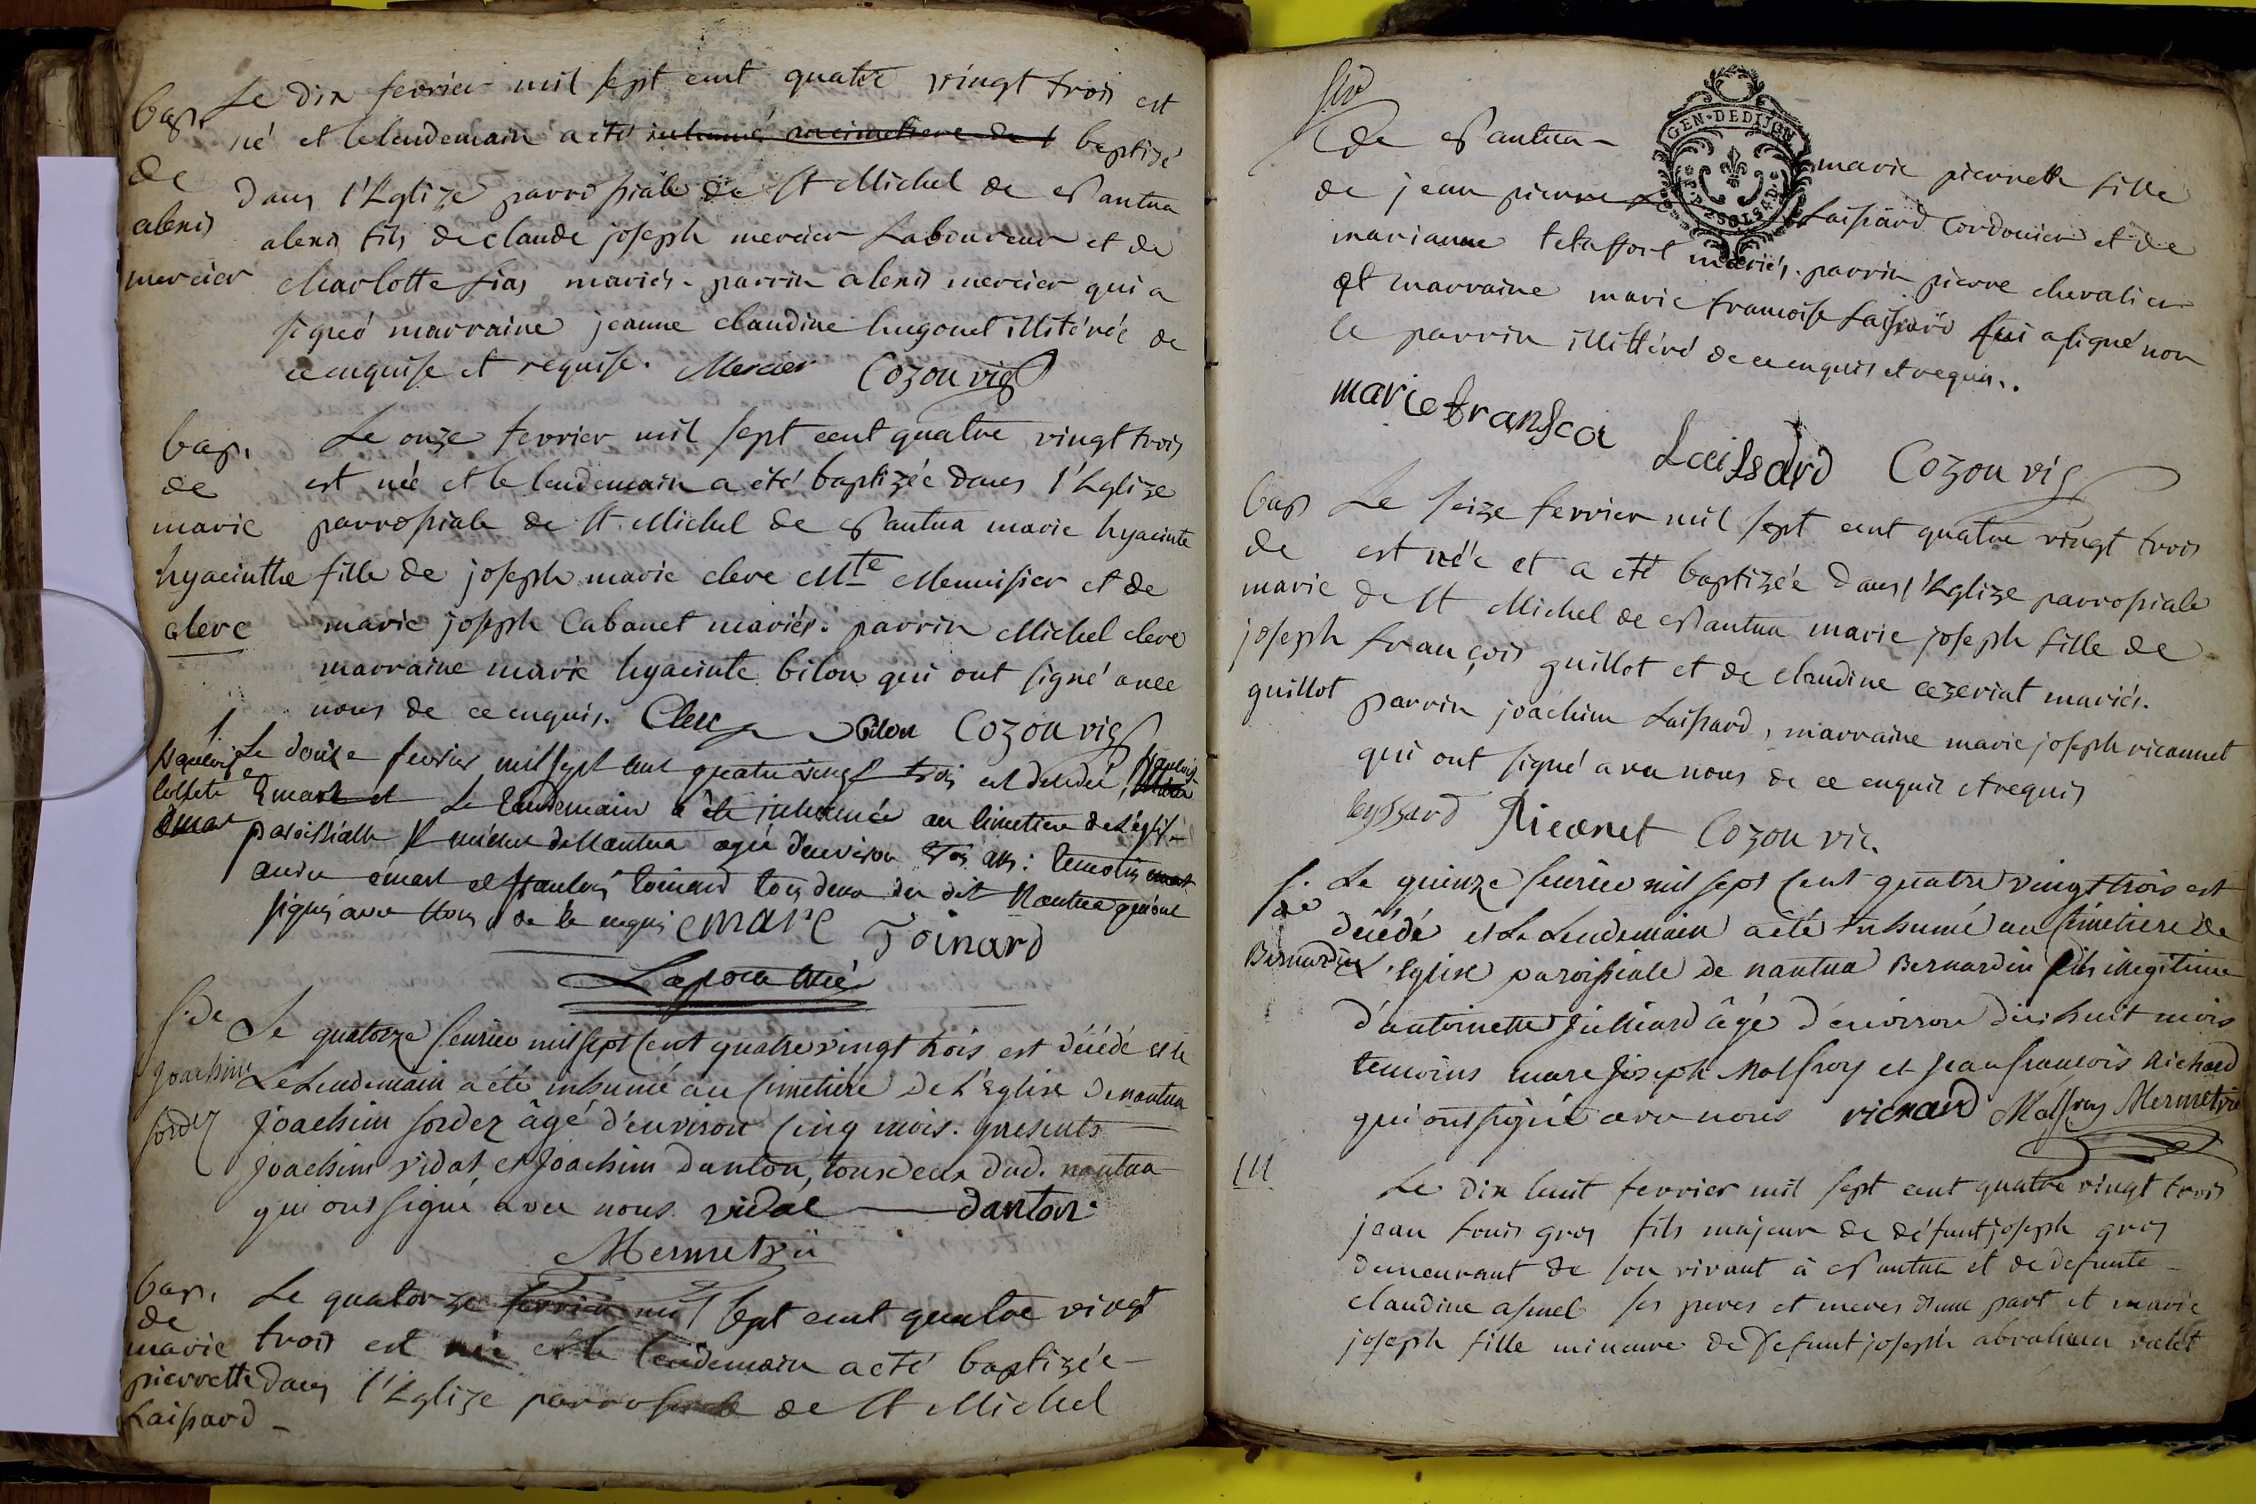 bap.
de
alexis
mercier
Le dix fevrier mil sept cent quatre vingt trois est
né et le lendemain a été inhumé au cimetiere de l baptizé
dans l'Eglize parrossiale de St Michel de Nantua
alexis fils de claude joseph mercier Laboureur et de
charlotte sias mariés. parrin alexis mercier qui a
signé marraine jeanne claudine hugonet illitérée de
ce enquise et requise. Mercier Cozon vic
bap.
de
marie
hyacinthe
clerc
Le onze fevrier mil sept cent quatre vingt trois
est née et le lendemain a été baptizée dans l'Eglize
parrossiale de St. Michel de Nantua marie hyacinte
fille de joseph marie clerc Mte Menuisier et de
marie joseph Cabanet mariés. parrin Michel clerc
marraine marie hyacinte bilon qui ont signé avec
nous de ce enquis. Clerc Bilon Cozon vic
f.
françoise
emar
Le douze fevrier mil sept cent quatre vingt trois est decedée françoise
Emart et Le Lendemain a été inhumée au cimetiere de l'églis-
paroissialle St michel de Nantua agée d'environ trois ans : temoins
emart et françois toinard tous deux du dit Nantua qui ont
signés avec Nous de ce enquis emare Toinard
f. de
joachim
sordez
Le quatorze fevrier mil sept cent quatre vingt trois est décédé et le
Le Lendemain a été inhumé au cimetiére de L'Eglise de nantua
joachim sordez âgé d'environ cinq mois. presents
joachim vidal, et joachim danton, tous deux dud. nantua
qui ont signé avec nous. vidal danton
Mermet vic
bap.
de
marie
pierrette
Laissard
Le quatorze fevrier mil sept cent quatre vingt
trois est née et le lendemain a été baptizée
dans l'Eglize parrossiale de St Michel
de Nantua
GEN·DE DIJON
marie pierrette fille
de jean pierre Laissard Cordonier et de
marianne tetaffort mariés. parrin pierre chevalier
et marraine marie francoise Laissard qui a signé non
le parrin illittéré de ce enquis et requis.
marie franscoi Laissard Cozon vic
bap
de
marie
joseph
guillot
Le seize fevrier mil sept cent quatre vingt trois
est née et a été baptizée dans l'Eglize parrossiale
de St Michel de Nantua marie joseph fille de
françois guillot et de claudine cezeriat mariés.
parrin joachim Laissard, marraine marie joseph ricannet
qui ont signé avec nous de ce enquis et requis
leyssard Ricanet Cozon vic.
f.
de
Bernardin
Le quinze fevrier mil sept cent quatre vingt trois est
décédé et Le Lendemain a été inhumé au cimetiere de
L'Eglise paroissiale de nantua Bernardin fils illegitime
d'antoinette Julliard âgé d'environ dix huit mois
temoins marc joseph Molfroy et jean francois Richard
qui ont signé avec nous richard Molfroy Mermet vic
Le dix huit fevrier mil sept cent quatre vingt trois
jean louis gros fils majeur de défunt joseph gros
demeurant de son vivant à Nantua et de defunte
claudine ses peres et meres d'une part et marie
joseph fille mineure de defunt joseph abraham valet